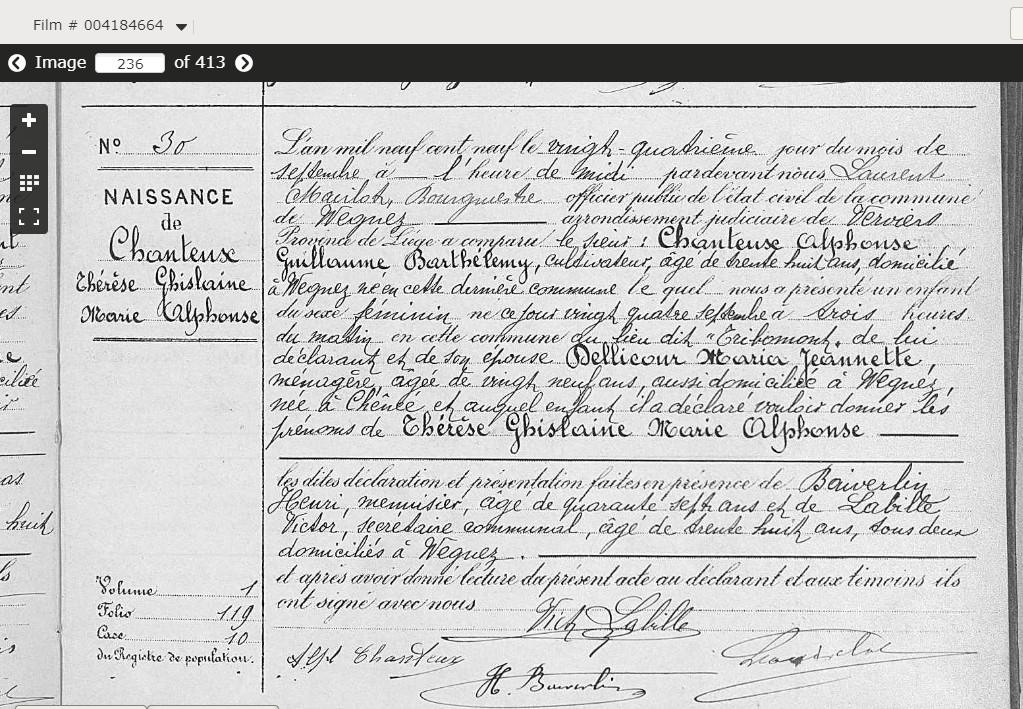 Film # 004184664
Image 236 of 413
Nº 30
NAISSANCE
de
Chanteux
Thérèse Ghislaine
Marie Alphonse
L'an mil neuf cent neuf le vingt-quatrième jour du mois de
septembre à l'heure de midi pardevant nous Laurent
Bourgmestre officier public de l'état civil de la commune
de Wegnez arrondissement judiciaire de Verviers
Province de Liège a comparu le sieur : Chanteux Alphonse
Guillaume Barthélemy, cultivateur, âgé de trente huit ans, domicilié
à Wegnez né en cette dernière commune le quel nous a présenté un enfant
du sexe féminin né ce jour vingt quatre septembre à trois heures
du matin en cette commune au lieu dit "Tribomont" de lui
déclarant et de son épouse Dellicour Maria Jeannette,
ménagère, âgée de vingt neuf ans, aussi domiciliée à Wegnez,
née à Chênée et auquel enfant il a déclaré vouloir donner les
prénoms de Thérèse Ghislaine Marie Alphonse
les dites déclaration et présentation faites en présence de Baiverlin
Henri, menuisier, âgé de quarante sept ans et de Labille
Victor, secrétaire communal, âgé de trente huit ans, tous deux
domiciliés à Wegnez.
et après avoir donné lecture du présent acte au déclarant et aux témoins ils
ont signé avec nous
Vict Labille
Alph Chanteux
H. Baiverlin
Volume 1
Folio 119
Case 10
du Registre de population.
huit